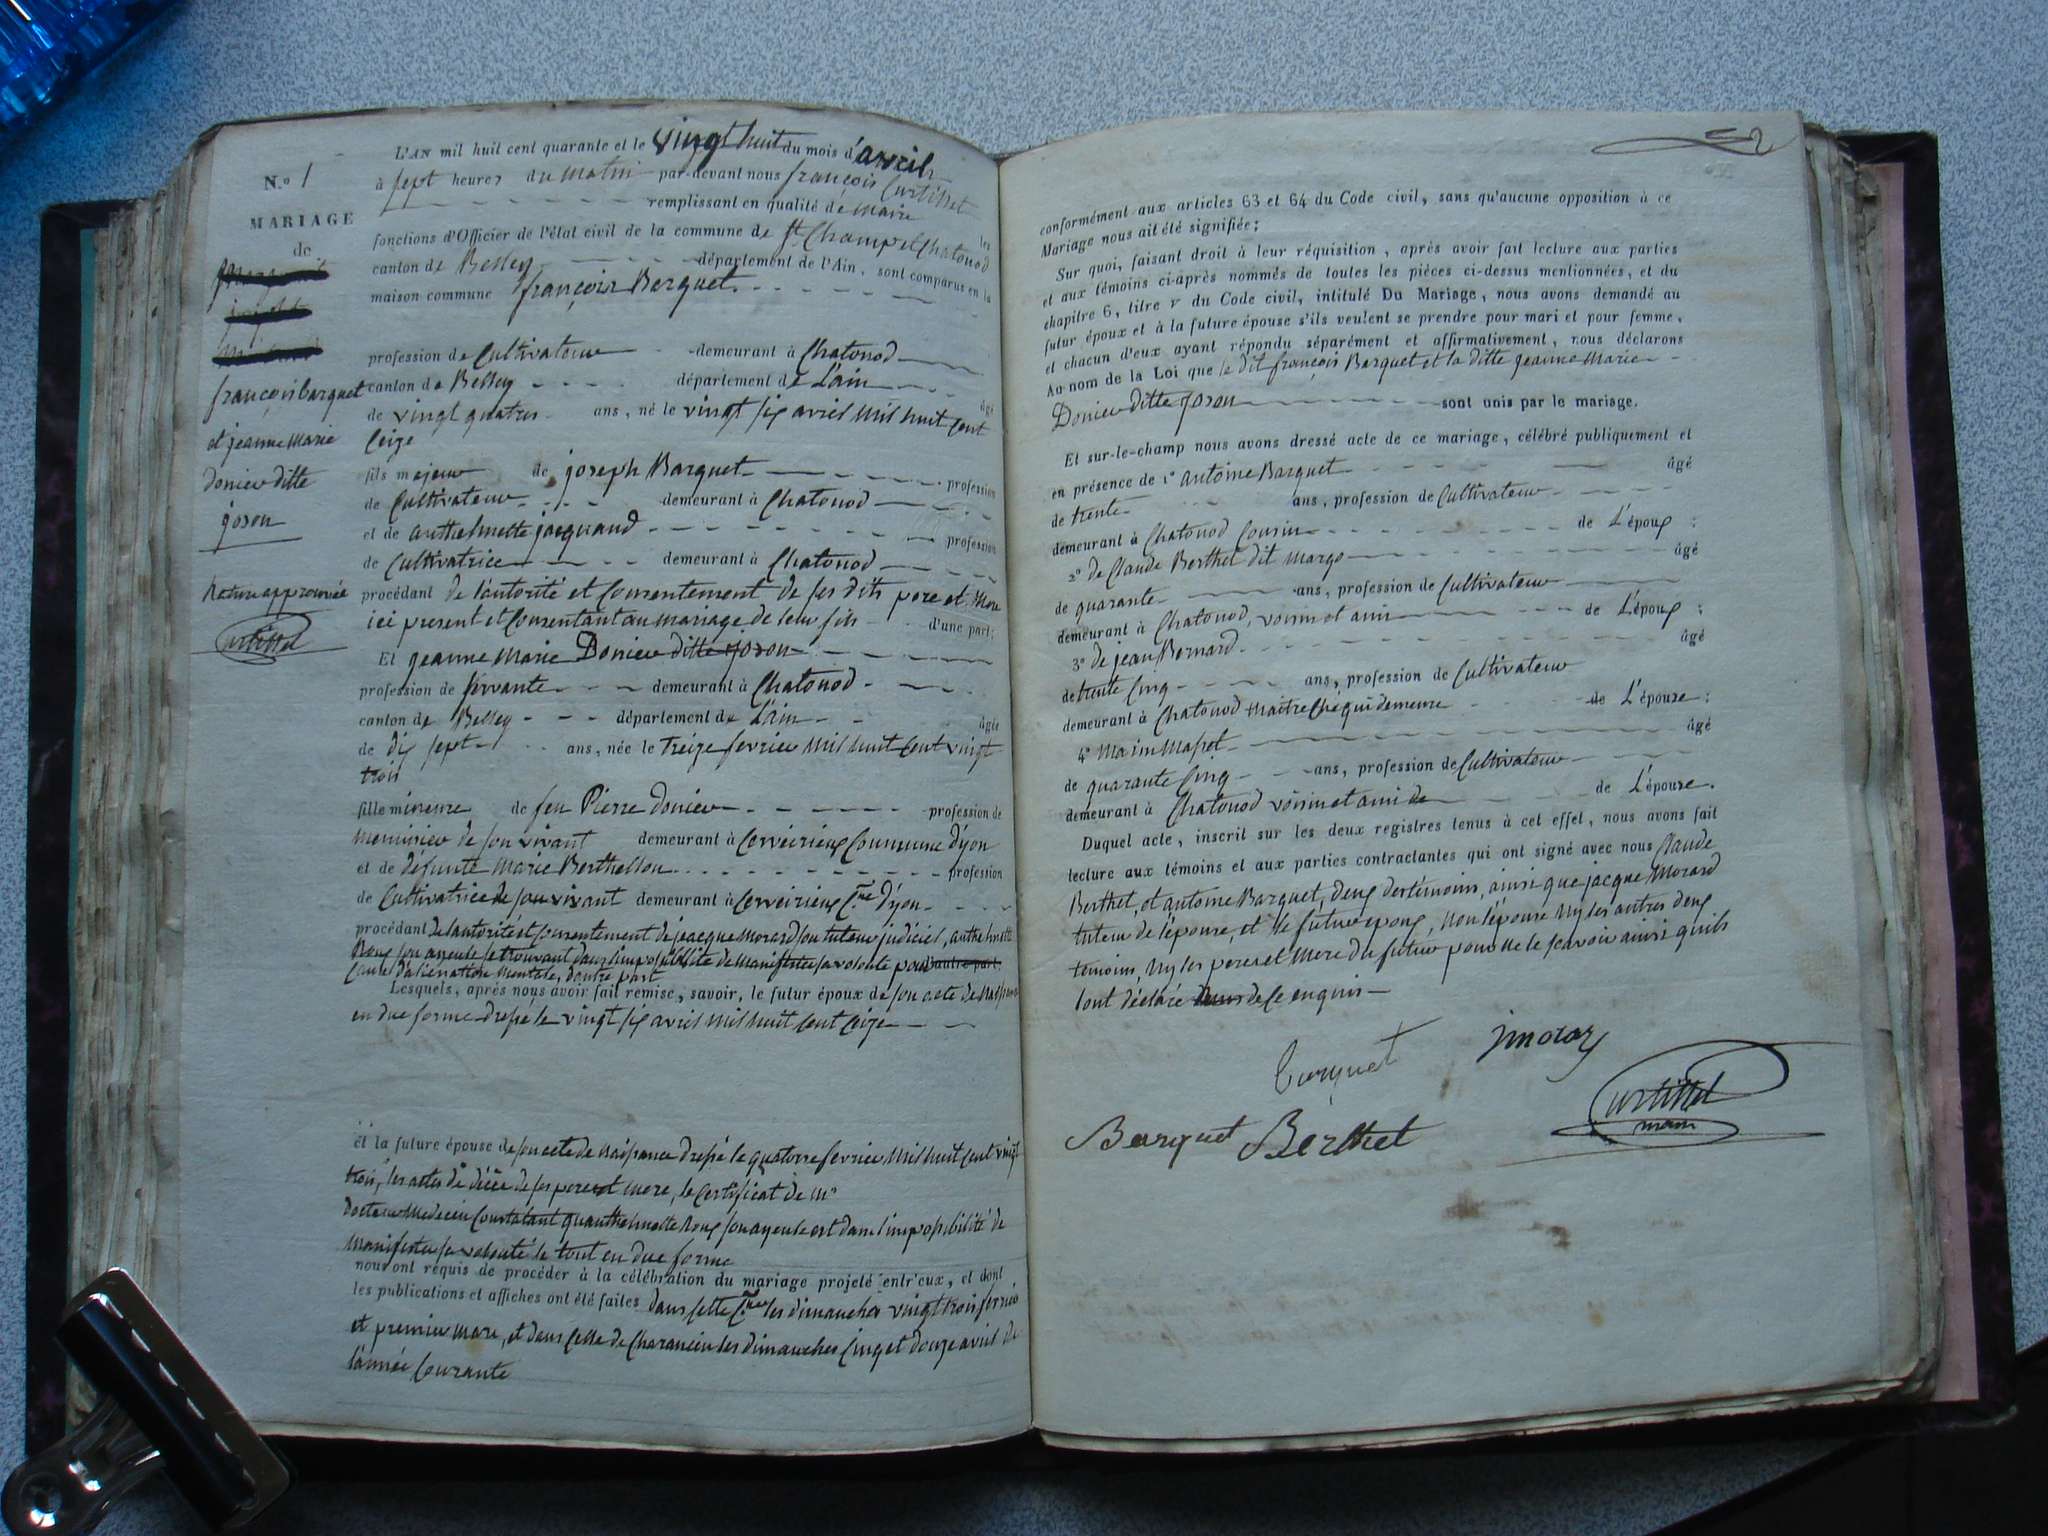 N.o 1
MARIAGE
de
françois barquet
et jeanne marie
donieu ditte
joson
Rature approuvée
Curtillet
L'AN mil huit cent quarante et le vingt huit du mois d'avril
à sept heures du matin par-devant nous françois Curtillet
remplissant en qualité de maire les
fonctions d'Officier de l'état civil de la commune de St Champ et Chatonod
canton de Belley département de l'Ain, sont comparus en la
maison commune françois Barquet
profession de Cultivateur demeurant à Chatonod
canton de Belley département de L'ain âgé
de vingt quatre ans, né le vingt six avril mil huit cent
seize
fils majeur de joseph Barquet profession
de Cultivateur demeurant à Chatonod
et de anthelmette jacquand profession
de Cultivatrice demeurant à Chatonod
procédant de l'autorité et consentement de ses dits pere et Mere
ici present et consentant au mariage de leur fils d'une part;
Et jeanne Marie Donieu ditte joson
profession de servante demeurant à Chatonod
canton de Belley département de L'ain âgée
de dix sept ans, née le treize fevrier mil huit cent vingt
trois
fille mineure de feu Pierre donieu profession de
menuisier de son vivant demeurant à Cerveirieux Commune d'yon
et de defunte Marie Berthellon profession
de Cultivatrice de son vivant demeurant à Cerveirieux C.ne d'yon
procédant de l'autorité et consentement de jeacque morard son tuteur judiciel, anthelmette
Roux son ayeule se trouvant dans l'impossibilité de manifester sa volonté pour d'autre part;
cause d'alienation mentale, d'autre part
Lesquels, après nous avoir fait remise, savoir, le futur époux de son acte de naissance
en due forme dressé le vingt six avril mil huit cent seize
et la future épouse de son acte de naissance dressé le quatorze fevrier mil huit cent vingt
trois, les actes de décés de ses pere et mere, le certificat de Mr
docteur Medecin Constatant qu'anthelmette Roux son ayeule est dans l'impossibilité de
manifester sa volonté le tout en due forme
nous ont requis de procéder à la célébration du mariage projeté entr'eux, et dont
les publications et affiches ont été faites dans cette C.ne les dimanches vingt trois fevrier
et premier mars, et dans celle de Charancin les dimanches cinq et douze avril de
l'année courante
2
conformément aux articles 63 et 64 du Code civil, sans qu'aucune opposition à ce
Mariage nous ait été signifiée;
Sur quoi, faisant droit à leur réquisition, après avoir fait lecture aux parties
et aux témoins ci-après nommés de toutes les pièces ci-dessus mentionnées, et du
chapitre 6, titre v du Code civil, intitulé Du Mariage, nous avons demandé au
futur époux et à la future épouse s'ils veulent se prendre pour mari et pour femme,
et chacun d'eux ayant répondu séparément et affirmativement, nous déclarons
Au nom de la Loi que le dit françois Barquet et la ditte jeanne Marie
Donieu ditte joson sont unis par le mariage.
Et sur-le-champ nous avons dressé acte de ce mariage, célébré publiquement et
en présence de 1° antoine Barquet âgé
de trente ans, profession de Cultivateur
demeurant à Chatonod Cousin de L'époux ;
2° de Claude Berthet dit margo âgé
de quarante ans, profession de Cultivateur
demeurant à Chatonod, voisin et ami de L'époux ;
3° de jean Bernard âgé
de trente cinq ans, profession de Cultivateur
demeurant à Chatonod maitre ché qui demeure de L'épouse ;
4° âgé
de quarante cinq ans, profession de Cultivateur
demeurant à Chatonod voisin et ami de de L'épouse.
Duquel acte, inscrit sur les deux registres tenus à cet effet, nous avons fait
lecture aux témoins et aux parties contractantes qui ont signé avec nous Claude
Berthet, et antoine Barquet, deux des témoins, ainsi que jacque Morard
tuteur de l'épouse, et le futur epoux, non l'épouse ny les autres deux
temoins, ny les pere et Mere du futur pour ne le scavoir ainsi qu'ils
l'ont déclaré de ce enquis
Barquet
jmorar
Curtillet
maire
Barquet
Berthet